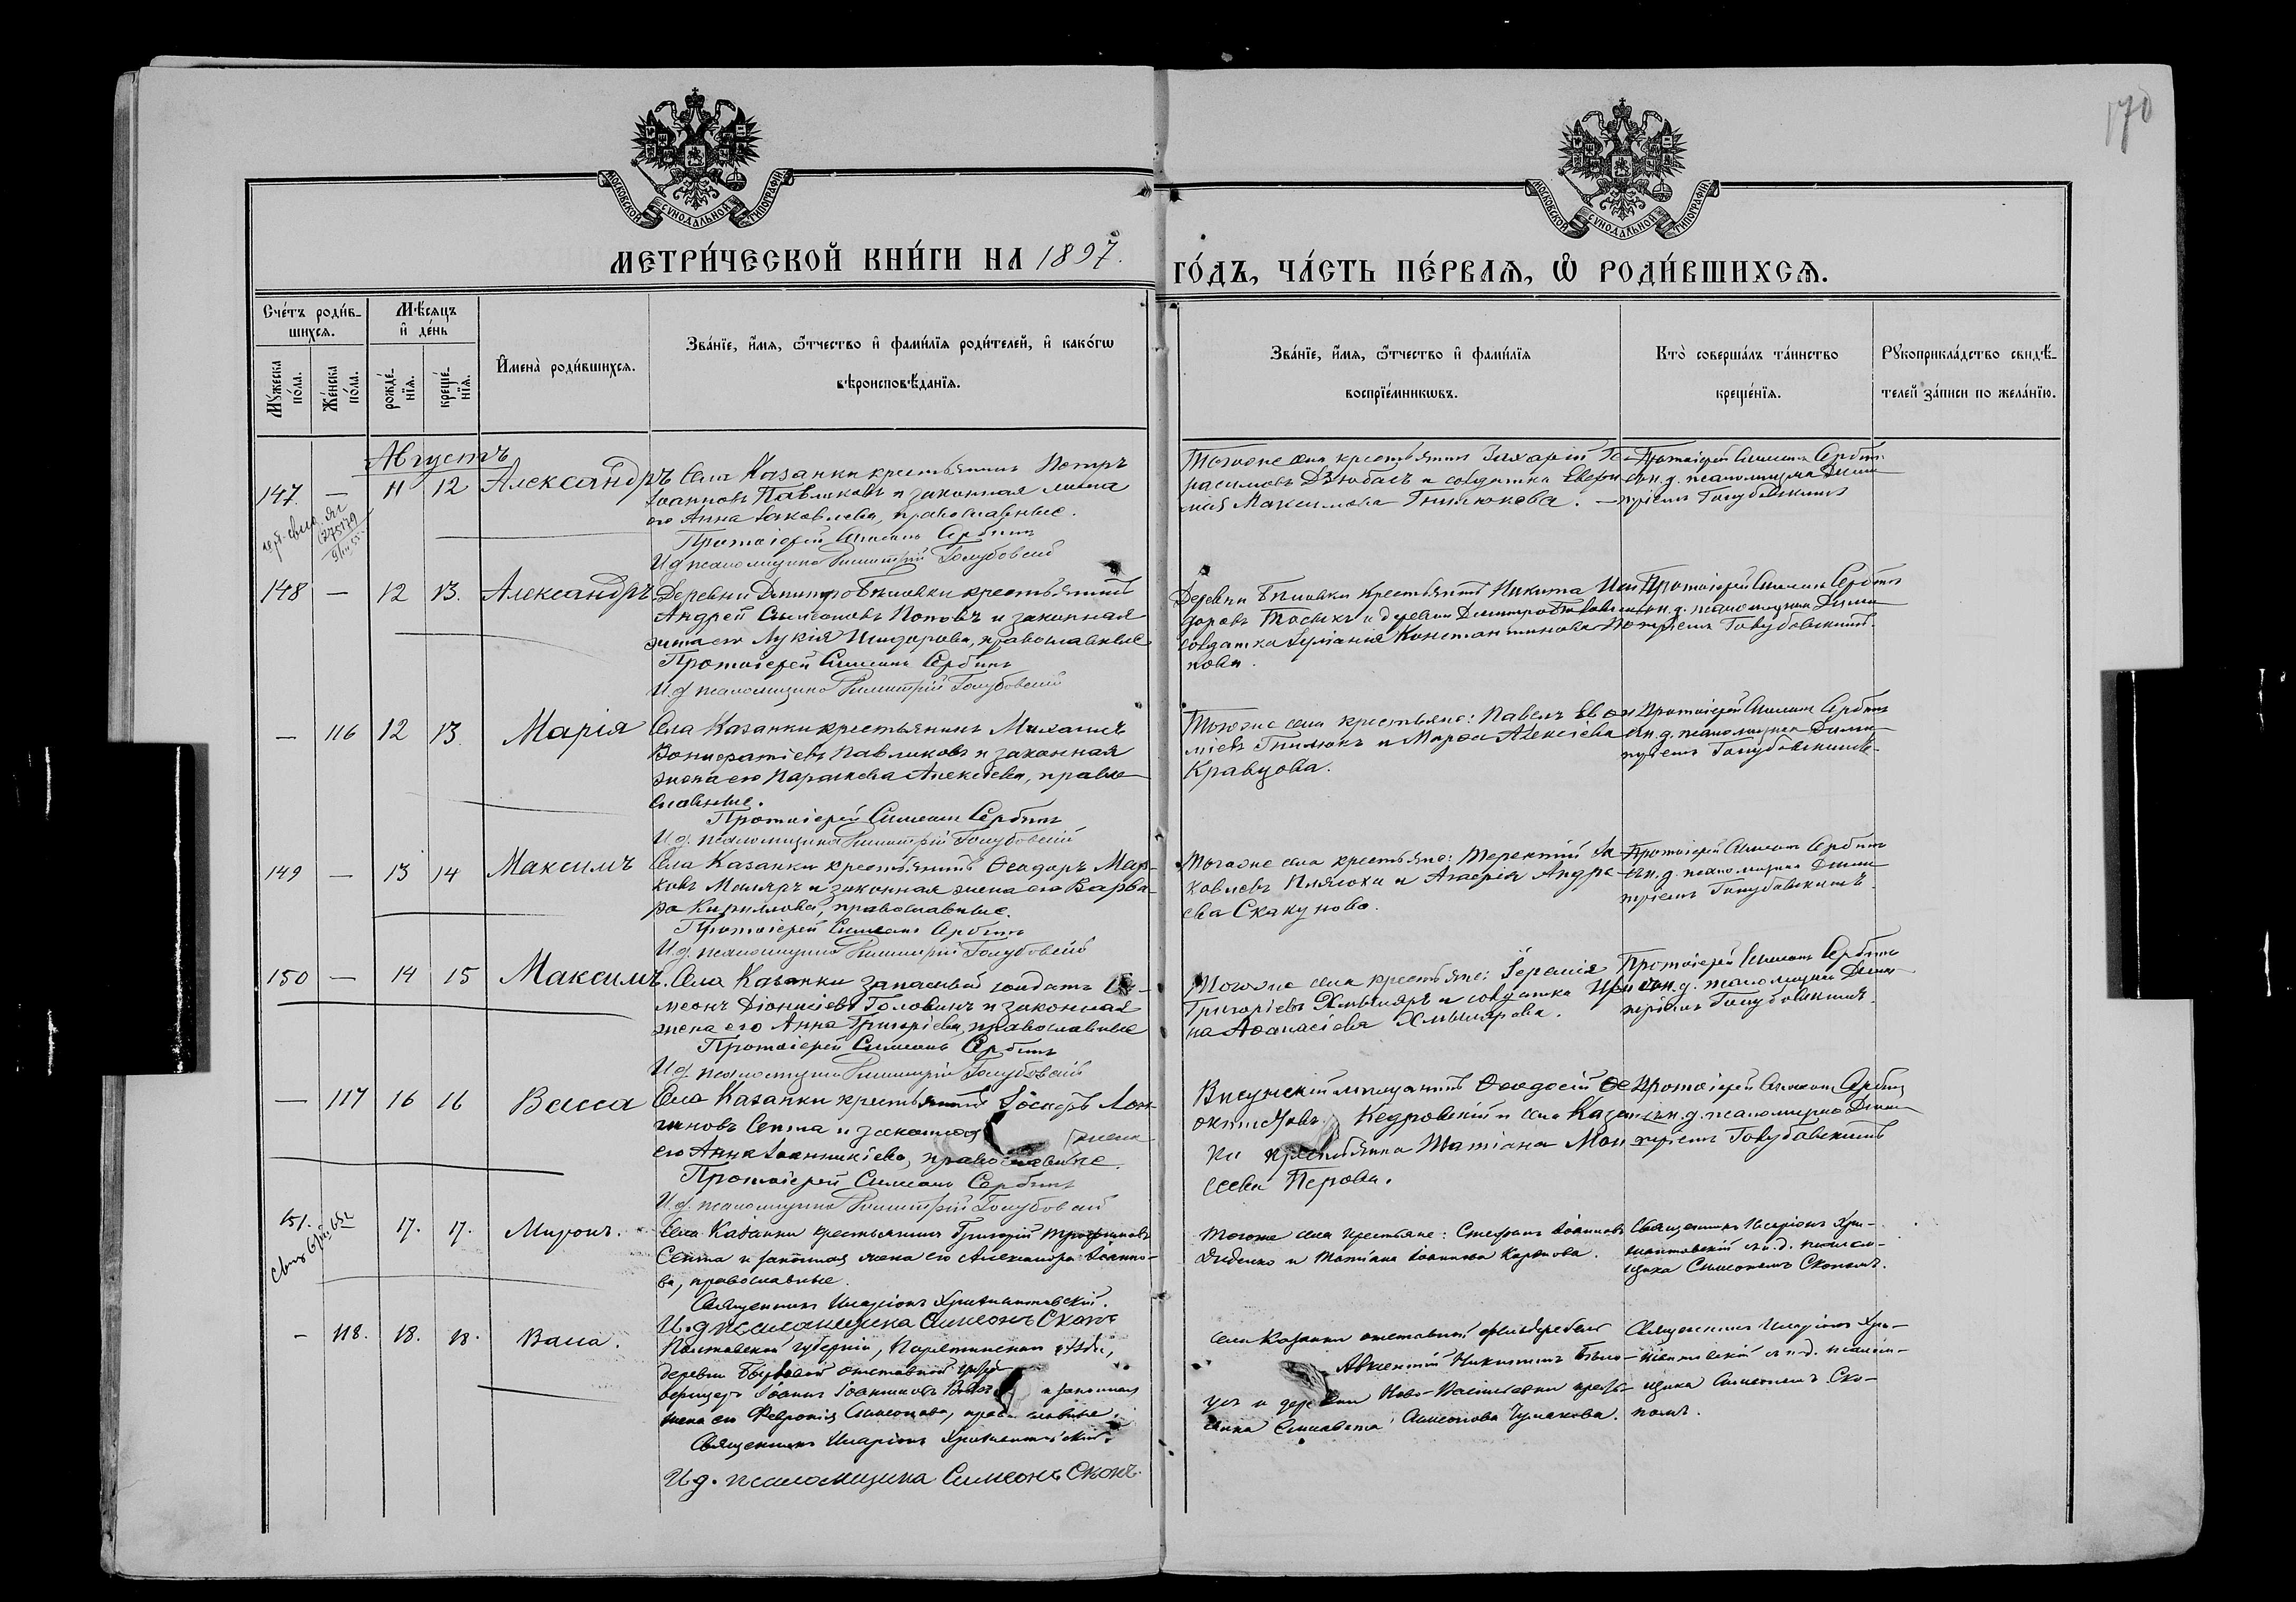 170
МОСКОВСКОЙ СУНОДАЛЬНОЙ ТИПОГРАФІИ
МОСКОВСКОЙ СУНОДАЛЬНОЙ ТИПОГРАФІИ
МЕТРИ́ЧЕСКОЙ КНИ́ГИ НА 1897.
ГО́ДЪ, ЧА́СТЬ ПЕ́РВАѦ, Ѡ҆ РОДИ́ВШИХСѦ.
Сче́тъ роди́в-
шихсѧ.
Мꙋ́жеска
по́ла.
Же́нска
по́ла.
Мѣ́сѧцъ
и҆ де́нь
рожде́-
нїѧ.
креще́-
нїѧ.
И҆мена̀ роди́вшихсѧ.
Зва́нїе, и҆́мѧ, ѻ҆́тчество и҆ фами́лїѧ роди́телей, и҆ како́гѡ
вѣроисповѣ́данїѧ.
Зва́нїе, и҆́мѧ, ѻ҆́тчество и҆ фами́лїѧ
воспрїе́мникѡвъ.
Кто̀ соверша́лъ та́инство
креще́нїѧ.
Рꙋкоприкла́дство свидѣ́-
телей за́писи по жела́нїю.
Августъ
147. — 11 12 Александръ
Села Казанки крестьянинъ Петръ
Іоанновъ Павликовъ и законная жена
его Анна Іаковлева, православные.
Протоіерей Симеонъ Сербинъ
И.д. псаломщика Димитрій Голубовскій
Тогоже села крестьянинъ Захарій Ге-
расимовъ Дзюбасъ и солдатка Евфи-
мія Максимова Гнилюкова.
Протоіерей Симеонъ Сербинъ
съ и.д. псаломщика Дими-
тріемъ Голубовскимъ
148 — 12 13. Александръ
Деревни Димитро Бѣловки крестьянинъ
Андрей Симеоновъ Поповъ и законная
жена его Лукія Исидорова, православные
Протоіерей Симеонъ Сербинъ
И.д. псаломщика Димитрій Голубовскій
Деревни Бѣловки крестьянинъ Никита Иси-
доровъ и деревни
солдатка Константинова По-
пова.
Протоіерей Симеонъ Сербинъ
съ и.д. псаломщика Дими-
тріемъ Голубовскимъ.
— 116 12 13. Марія
Села Казанки крестьянинъ Михаилъ
Вонифатіевъ Павликовъ и законная
жена его Параскева Алексіева, право-
славные.
Протоіерей Симеонъ Сербинъ
И.д. псаломщика Димитрій Голубовскій
Тогоже села крестьяне: Павелъ Евѳи-
міевъ Гнилюкъ и Марѳа Алексіева
Кравцова.
Протоіерей Симеонъ Сербинъ
съ и.д. псаломщика Дими-
тріемъ Голубовскимъ
149 — 13 14 Максимъ
Села Казанки крестьянинъ Ѳеодоръ Мар-
ковъ Маляръ и законная жена его Варва-
ра Кириллова, православные.
Протоіерей Симеонъ Сербинъ
И.д. псаломщика Димитрій Голубовскій
Тогоже села крестьяне: Терентій Іа-
ковлевъ и Агаѳія Андре-
ева Скакунова.
Протоіерей Симеонъ Сербинъ
съ и.д. псаломщика Дими-
тріемъ Голубовскимъ
150 — 14 15 Максимъ.
Села Казанки запасный солдатъ Си-
меонъ Діонисіевъ Головинъ и законная
жена его Анна Григоріева, православные
Протоіерей Симеонъ Сербинъ
И.д. псаломщика Димитрій Голубовскій
Тогоже села крестьяне: Іеремія
Григоріевъ и солдатка Ири-
на Аѳанасіева
Протоіерей Симеонъ Сербинъ
съ и.д. псаломщика Дими-
тріемъ Голубовскимъ
— 117 16 16 Васса
Села Казанки крестьянинъ Іосифъ Лон-
гиновъ Септа и законная жена
его Анна Іоанникіева, православные.
Протоіерей Симеонъ Сербинъ
И.д. псаломщика Димитрій Голубовскій
Висунскій мѣщанинъ Ѳеодосій Ѳе-
октистовъ Кедровскій и села Казан-
ки крестьянка Татіана Мои-
сеева Перова.
Протоіерей Симеонъ Сербинъ
съ и.д. псаломщика Дими-
тріемъ Голубовскимъ
151. 17. 17. Миронъ.
Села Казанки крестьянинъ Григорій Трофимовъ
Септа и законная жена его Александра Іоанно-
ва, православные.
Священникъ Иларіонъ
И.д псаломщика Симеонъ Скокъ
Тогоже села крестьяне: Стефанъ Іоанновъ
Диденко и Татіана Іоаннова Карпова.
Священникъ Иларіонъ
съ и.д. псалом-
щика Симеономъ Скокомъ.
— 118. 18. 18. Васса.
Полтавской губерніи, уѣзда,
деревни отставной
Іоаннъ Іоанниковъ и законная
жена его Февронія Симеонова, православные.
Священникъ Иларіонъ
И.д. псаломщика Симеонъ Скокъ.
Села Казанки отставный фельдфебель
Авксентій Никитинъ Бѣло-
усъ и деревни Ново-Васильевки кресть-
янка Елисавета Симеонова Чумакова.
Священникъ Иларіонъ
съ и.д. псалом-
щика Симеономъ Ско-
комъ.